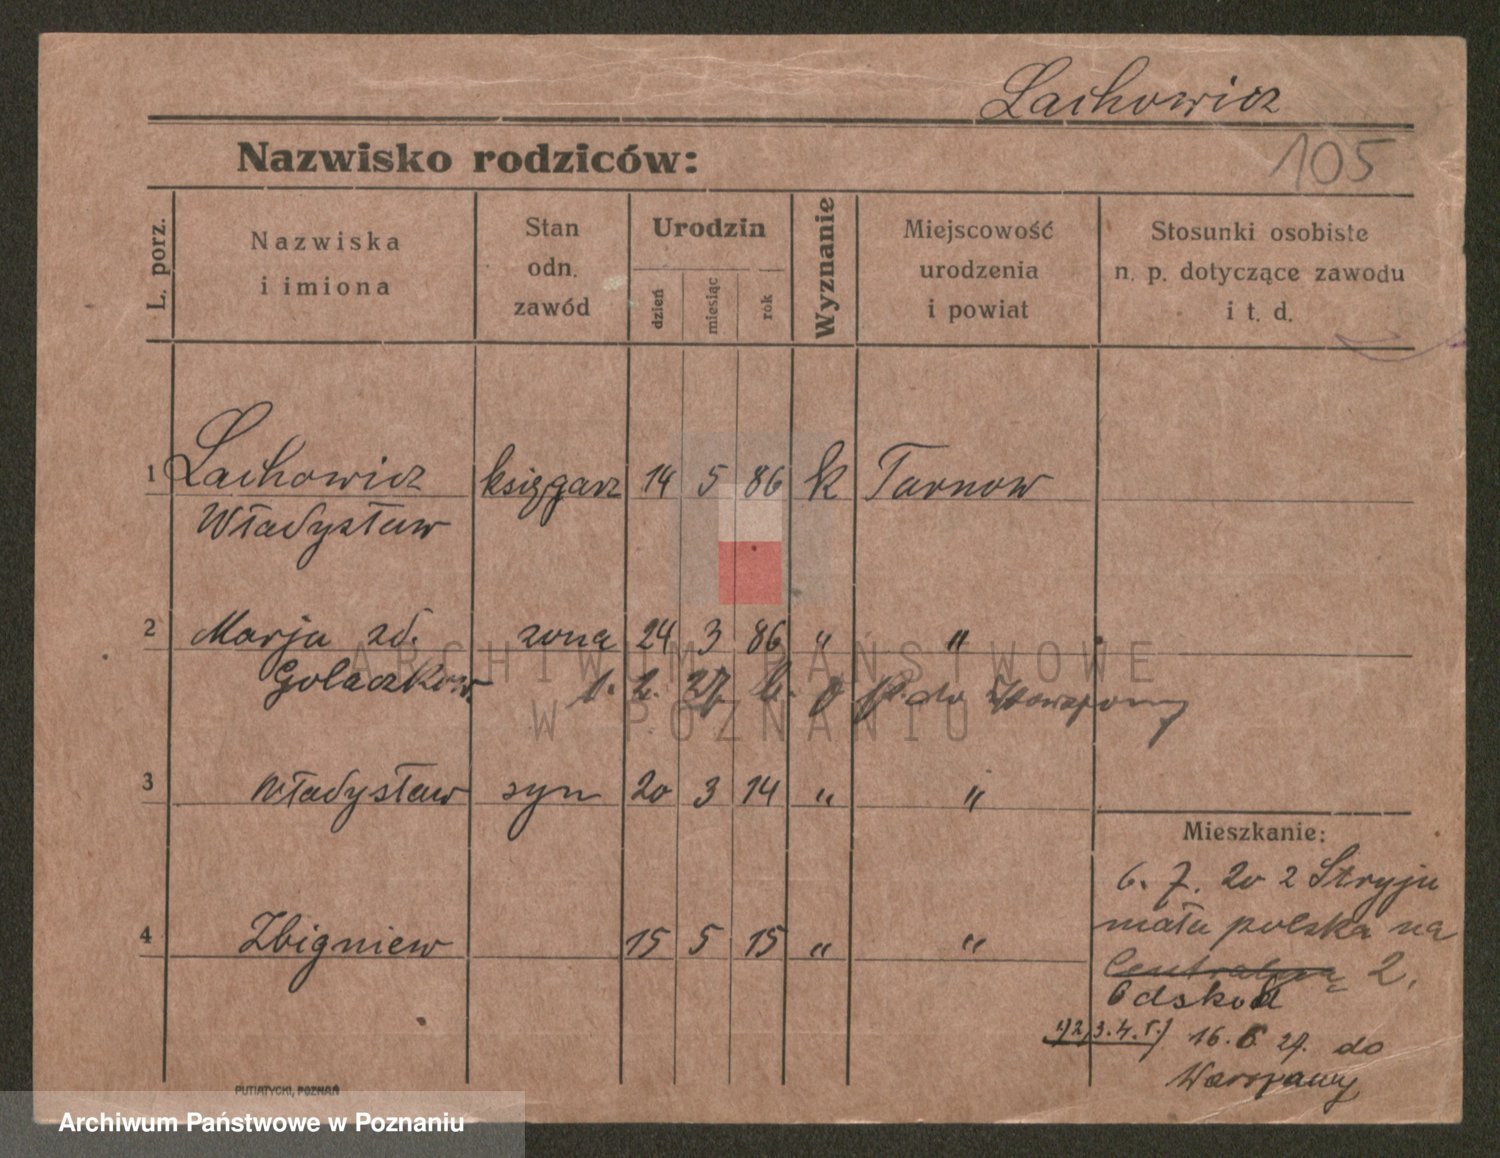 Lachowicz
105
Nazwisko rodziców:
L. porz.
Nazwiska
i imiona
Stan
odn.
zawód
Urodzin
dzień
miesiąc
rok
Wyznanie
Miejscowość
urodzenia
i powiat
Stosunki osobiste
n. p. dotyczące zawodu
i t. d.
1 Lachowicz księgarz 14 5 86 k Tarnow
Władysław
2 Marja zd. żona 24 3 86 " "
Golaczkow.
1. 2. 27 do Warszawy
3 Władysław syn 20 3 14 " "
4 Zbigniew 15 5 15 " "
Mieszkanie:
6. 7. 20 z Stryju
mału polska na
Centralną 2.
Odskod
1) 2) 3. 4. 5.) 16. 6 27. do
Warszawy
PUTIATYCKI, POZNAŃ
ARCHIWUM PAŃSTWOWE
W POZNANIU
Archiwum Państwowe w Poznaniu